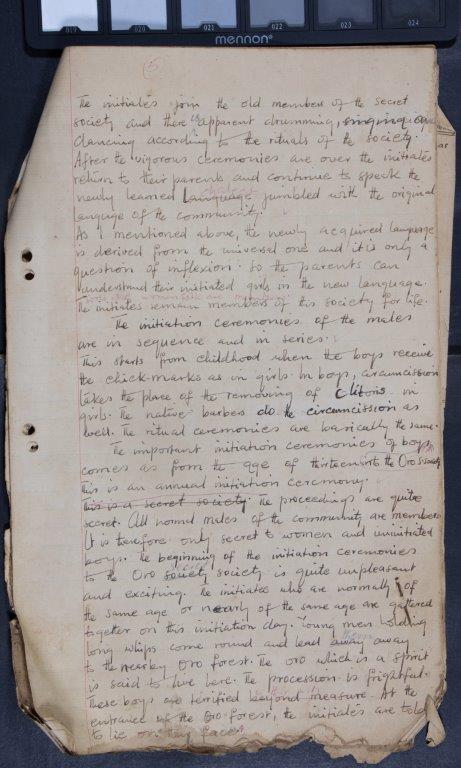 019 020 021 022 023 024
mennon®
5
The initiates join the old members of the secret
society and there is apparent drumming, singing and
dancing according to the rituals of the society.
After the vigorous ceremonies are over the initiates
return to their parents and continue to speak the
newly learned language jumbled with the original
languge of the community.
As I mentioned above, the newly acquired language
is derived from the universal one and it is only a
question of inflexion. So the parents can
understand their initiated girls in the new language.
The initiates remain members of this society for life.
The initiation ceremonies of the males
are in sequence and in series.
This starts from childhood when the boys receive
the chick-marks as in girls. In boys, circumcission
takes the place of the removing of Clitoris in
girls. The native barbers do the circumcission as
well. The ritual ceremonies are basically the same.
The important initiation ceremonies of boys
comes as from the age of thirteen into the Oro Society
this is an annual initiation ceremony.
this is a secret society. The proceedings are quite
secret. All normal males of the community are members
It is therefore only secret to women and uninitiated
boys. The beginning of the initiation ceremonies
to the Oro society society is quite unpleasant
and exciting. The initiates who are normally of
the same age or nearly of the same age are gathered
together on this initiation day. Young men holding
long whips come round and lead them away away
to the nearby Oro forest. The oro which is a spirit
is said to live here. The procession is frightful.
These boys are terrified beyond measure. At the
entrance of the Oro-forest, the initiates are told
to lie on their faces